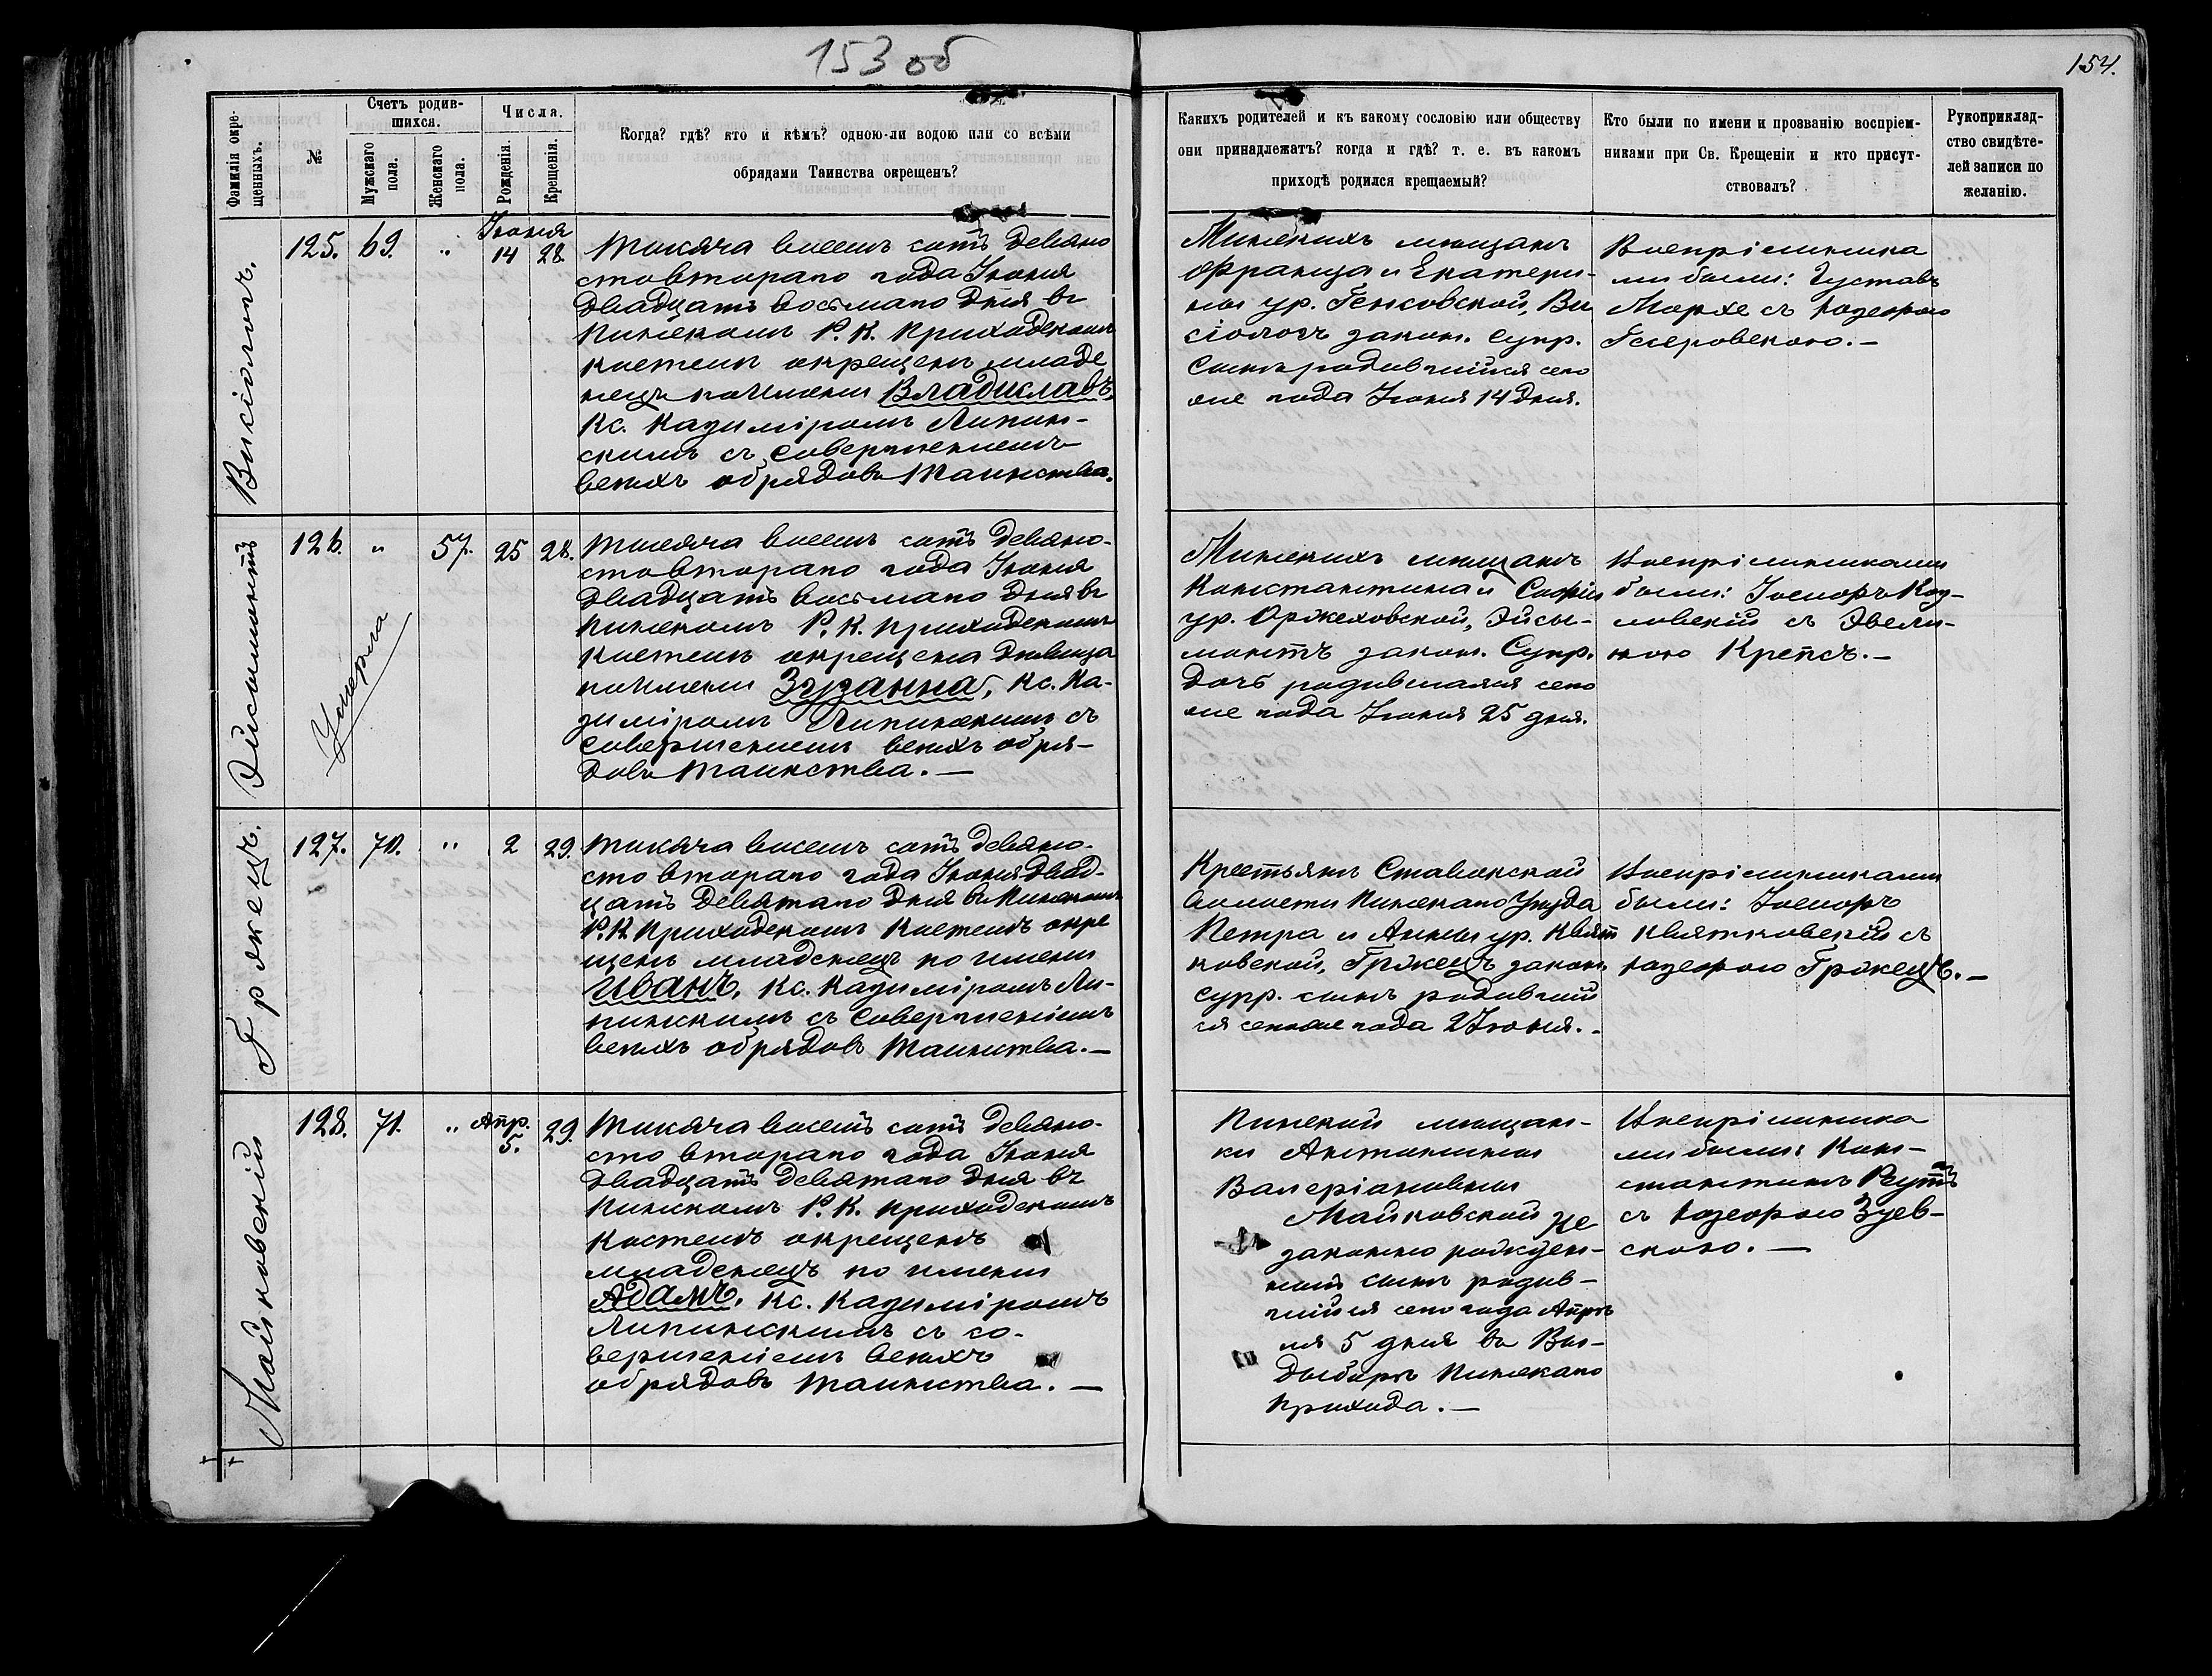 153 об
154.
Фамилія окре-
щенныхъ.
№
Счетъ родив-
шихся.
Мужскаго
пола.
Женскаго
пола.
Числа.
Рожденія.
Крещенія.
Когда? гдѣ? кто и кѣмъ? одною-ли водою или со всѣми
обрядами Таинства окрещенъ?
Какихъ родителей и къ какому сословію или обществу
они принадлежатъ? когда и гдѣ? т. е. въ какомъ
приходѣ родился крещаемый?
Кто были по имени и прозванію воспріем-
никами при Св. Крещеніи и кто присут-
ствовалъ?
Рукоприклад-
ство свидѣте-
лей записи по
желанію.
Висіологъ.
125. 69. " Іюня 14 28.
Тысяча восемь сотъ девяно
стовтораго года Іюня
двадцать восьмаго дня въ
Пинскомъ Р. К. приходскомъ
костелѣ окрещенъ младе
нецъ по имени Владиславъ,
Кс. Казиміромъ Липин-
скимъ съ совершеніемъ
всѣхъ обрядовъ таинства.
Пинскихъ мѣщанъ
Франца и Екатери-
ны ур. Генсовской, Ви
сіологъ закон. супр.
сынъ родившійся сего
же года Іюня 14 дня.
Воспріемника
ми были: Густавъ
Морхе съ Іозефою
Гсеровскою.—
Эйсымонтъ
Умерла
126. " 57. 25 28.
Тысяча восемь сотъ девяно-
стовтораго года Іюня
двадцать восьмаго дня въ
Пинскомъ Р. К. приходскомъ
костелѣ окрещена дѣвица
по имени Зузанна, Кс. Ка-
зиміромъ Липинскимъ съ
совершеніемъ всѣхъ обря-
довъ таинства.—
Пинскихъ мѣщанъ
Константина и Софіи
ур. Оржеховской, Эйсы-
монтъ закон. супр.
дочь родившаяся сего
же года Іюня 25 дня.
Воспріемниками
были: Іосифъ Коз-
ловскій съ Эвели-
ною Крепсъ.—
Гржецъ.
127. 70. " 2 29.
Тысяча восемь сотъ девяно-
сто втораго года Іюня двад-
цать девятаго дня въ Пинскомъ
Р. К. приходскомъ костелѣ окре
щенъ младенецъ по имени
Иванъ, Кс. Казиміромъ Ли-
пинскимъ съ совершеніемъ
всѣхъ обрядовъ таинства.—
Крестьянъ Ставокской
волости Пинскаго уѣзда
Петра и Анны ур. Квят
ковской, Гржецъ закон.
супр. сынъ родивший
ся сегоже года 2 Іюня.-
Воспріемниками
были: Іосифъ
Квятковскій съ
Іозефою Гржецъ.—
Майковскій
128. 71. " Апр. 5. 29.
Тысяча восемь сотъ девяно-
сто втораго года Іюня
двадцать девятаго дня въ
Пинскомъ Р. К. приходскомъ
костелѣ окрещенъ
младенецъ по имени
Адамъ, Кс. Казиміромъ
Липинскимъ съ со-
вершеніемъ всѣхъ
обрядовъ таинства.—
Пинской мѣщан-
ки Антонины
Валеріановны
Майковской не
законно рожден-
ный сынъ родив-
шійся сего года Апрѣ
ля 5 дня въ Вы-
дыборѣ Пинскаго
прихода.—
Воспріемника
ми были: Кон-
стантинъ Реутъ
съ Іозефою Зуев-
скою.—